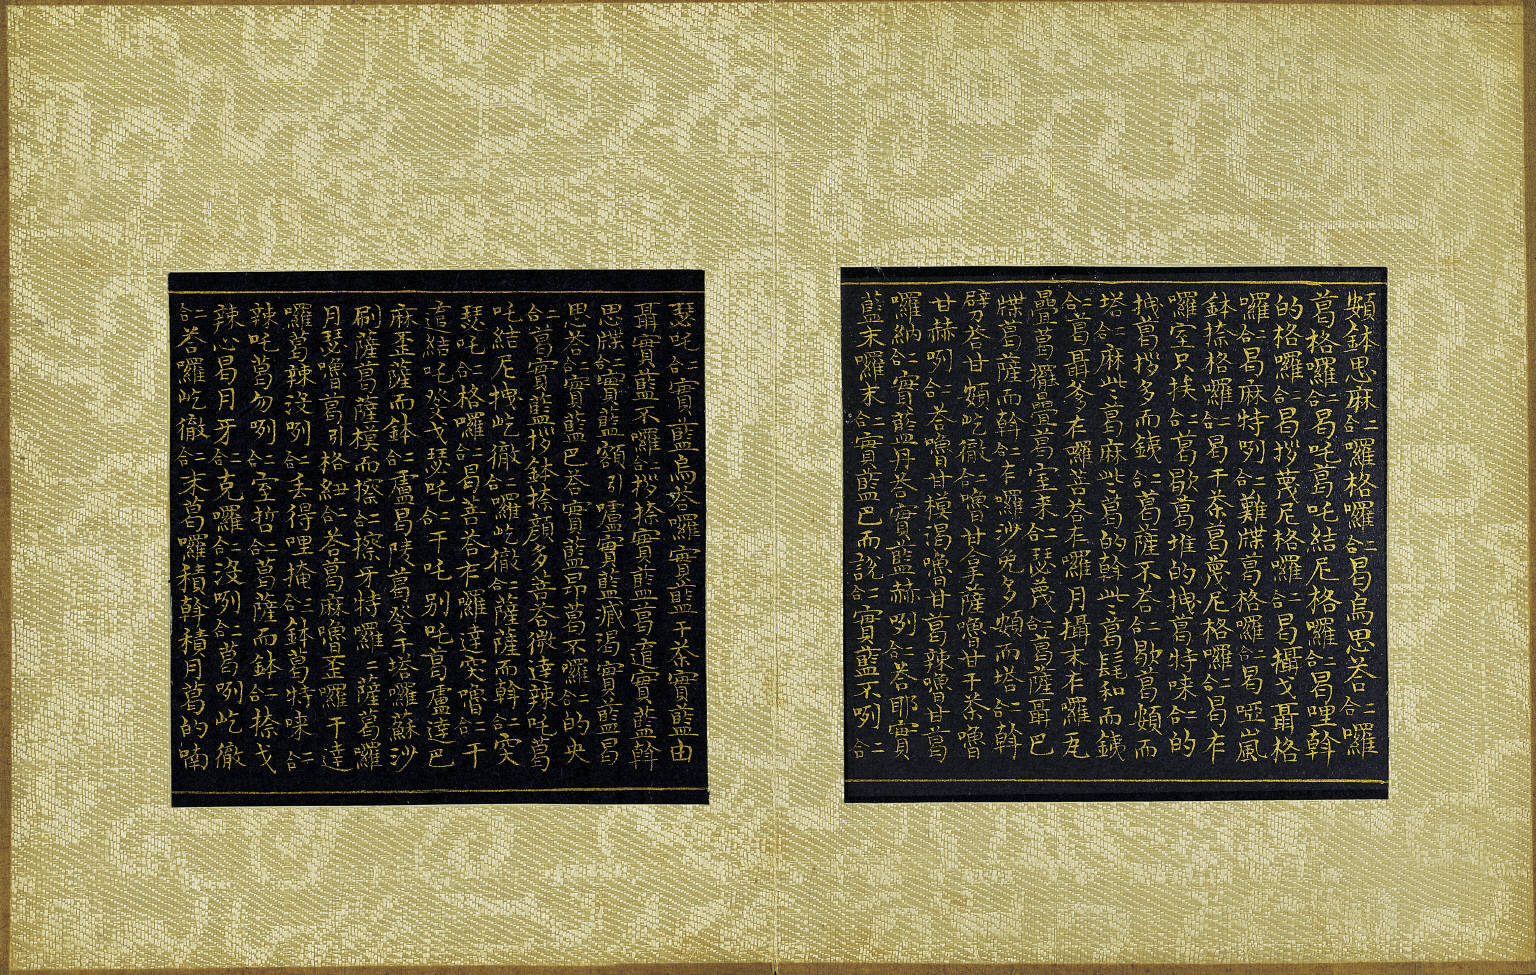 頗鉢思麻二合囉格囉二合曷烏思荅二合囉
葛格囉二合曷吒葛吒結尼格囉二合曷哩斡
的格囉二合曷拶蔑尼格囉二合曷攝戈聶格
囉二合曷麻特咧二合難牒葛格囉二合曷啞嵐
鉢捺格囉二合曷干茶葛蔑尼格囉二合曷乍
囉室只挨二合葛歇葛堆的拽葛特唻二合的
拽葛拶多而銕二合葛薩不荅二合歇葛頗而
塔二合麻些葛麻些葛的斡些葛髭和而銕
二合葛聶爹乍囉菩荅乍囉月攝末乍囉瓦
疊葛擺疊葛室来二合瑟蔑二合葛薩聶巴
牒葛薩而斡二合乍囉沙免多頗而塔二合斡
劈荅甘頗屹徹二合嚕甘拿薩嚕甘干茶嚕
甘赫咧二合荅嚕甘模渴嚕甘葛辣嚕甘葛
囉納二合實藍丹荅實藍赫咧二合荅耶實
藍末囉末二合實藍巴而說二合實藍不咧二合
瑟吒二合實藍烏荅囉實藍干茶實藍由
聶實藍不囉二合拶捺實藍葛遣實藍斡
思牒二合實藍額引嚧實藍戚渴實藍曷
思荅二合實藍巴荅實藍昂葛不囉二合的央
二合葛實藍拶鉢捺顔多菩荅微達辣吒葛
吒結尼拽屹徹二合囉屹徹二合薩薩而斡二合突
瑟吒二合格囉二合曷菩荅乍囉達突嚕二合干
遣結吒癹戈瑟吒二合干吒别吒葛盧達巴
麻歪薩而鉢二合盧曷陵葛癹干塔囉蘇沙
刷薩葛薩模而擦二合擦牙特囉二合薩葛囉
月瑟嚕葛引格紐二合荅葛麻嚕歪羅干達
囉葛辣沒咧二合丢得哩掩二合鉢葛特唻二合
辣吒葛勿咧二合室哲二合葛薩而鉢二合捺戈
辣心曷月牙二合克囉二合沒咧二合葛咧屹徹
二合荅囉屹徹二合末葛囉積斡積月葛的喃